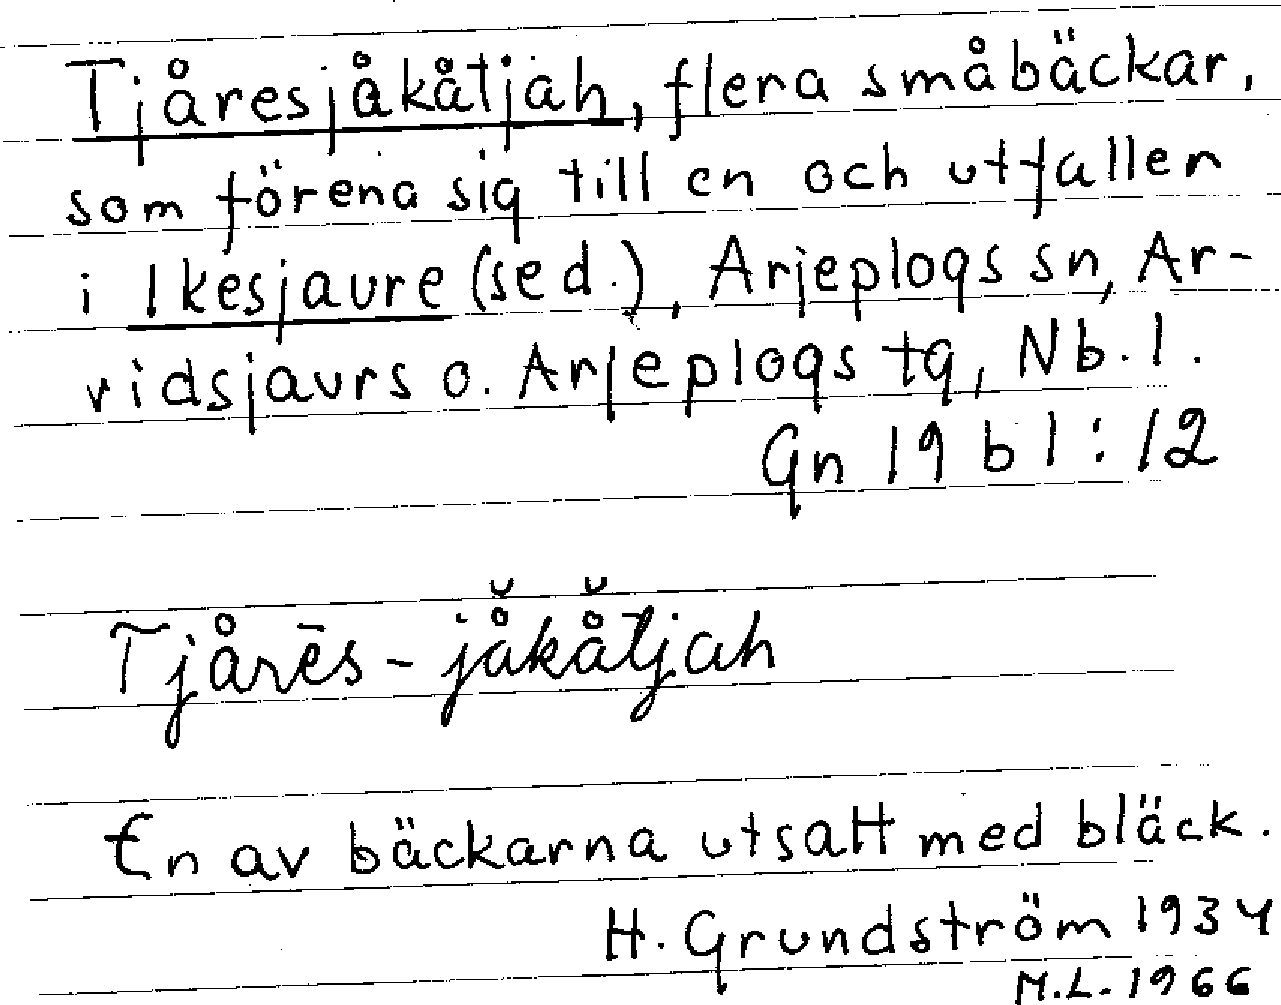 Tjåresjåkåtjah, flera småbäckar,
som förena sig till en och utfaller
i Ikesjaure (se d.), Arjeplogs sn, Ar-
vidsjaurs o. Arjeplogs tg, Nb. l.
Gn 19 b 1 : 12
Tjårēs - jå̆kå̆tjah
En av bäckarna utsatt med bläck.
H. Grundström 1934
M.L. 1966